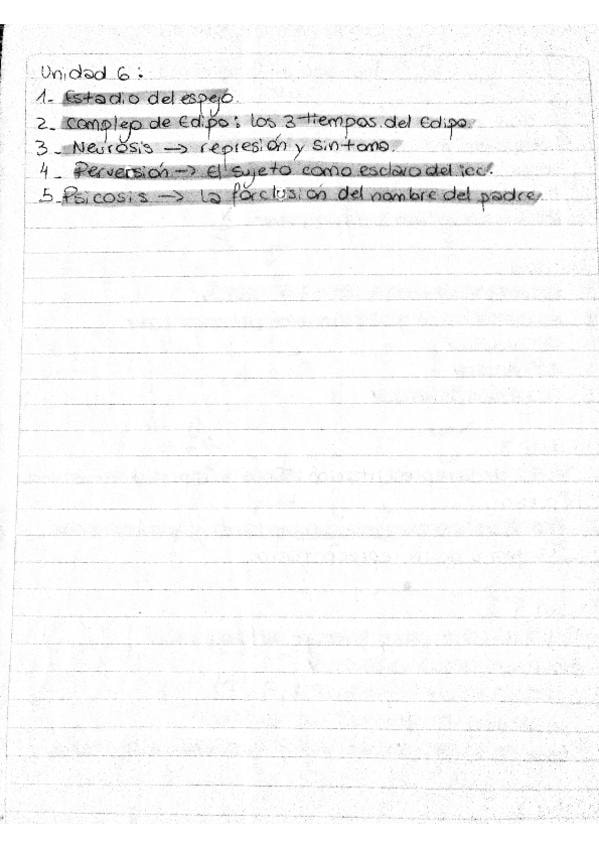 Unidad 6:
1- Estadio del espejo.
2- Complejo de Edipo: los 3 tiempos del Edipo.
3- Neurosis → represión y síntoma.
4- Perversión → El sujeto como esclavo del icc.
5- Psicosis → La forclusión del nombre del padre.